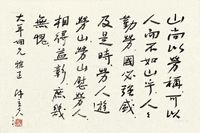 山尚以勞稱可以
人而不如山乎人人
勤勞國必強盛
及是時勞人遊
勞山勞山慰勞人
相得益彰庶幾
無愧
大年同兄雅正